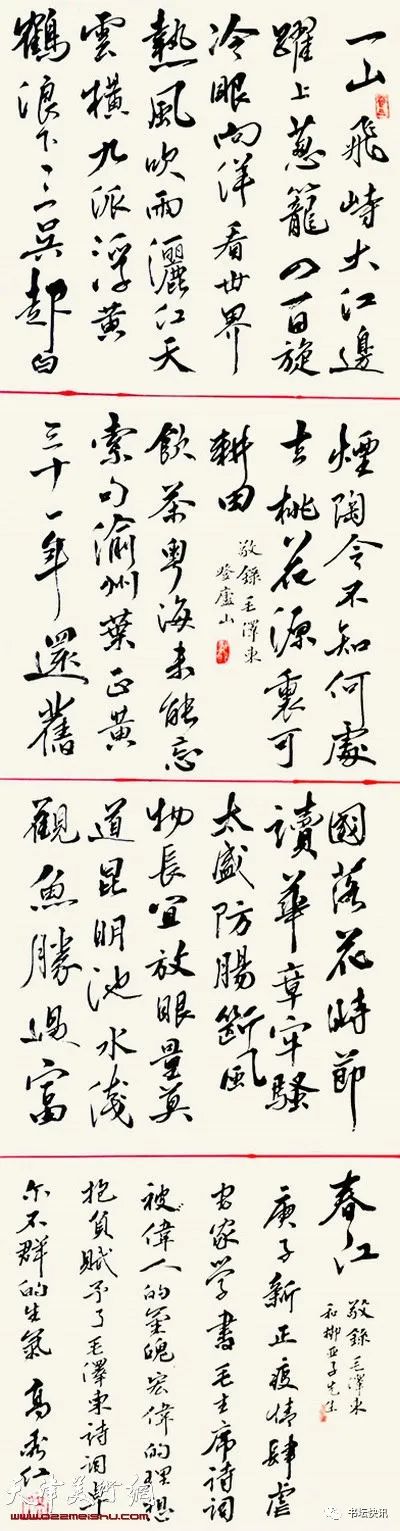 一山飛峙大江邊
躍上葱籠四百旋
冷眼向洋看世界
熱風吹雨灑江天
雲横九派浮黄
鶴浪下三吴起白
煙陶令不知何處
去桃花源裏可
耕田
敬錄毛澤東
登廬山
飲茶粵海未能忘
索句渝州葉正黄
三十一年還舊
國落花時節
讀華章牢騷
太盛防腸斷風
物長宜放眼量莫
道昆明池水淺
觀魚勝過富
春江
敬錄毛澤東
和柳亞子先生
庚子新正疫情肆虐
宅家學書毛主席詩詞
被偉人的氣魄宏偉的理想
抱負賦予了毛澤東詩詞卓
尔不群的生氣 高秀仁
天津美術網
www.022meishu.com
书坛快讯